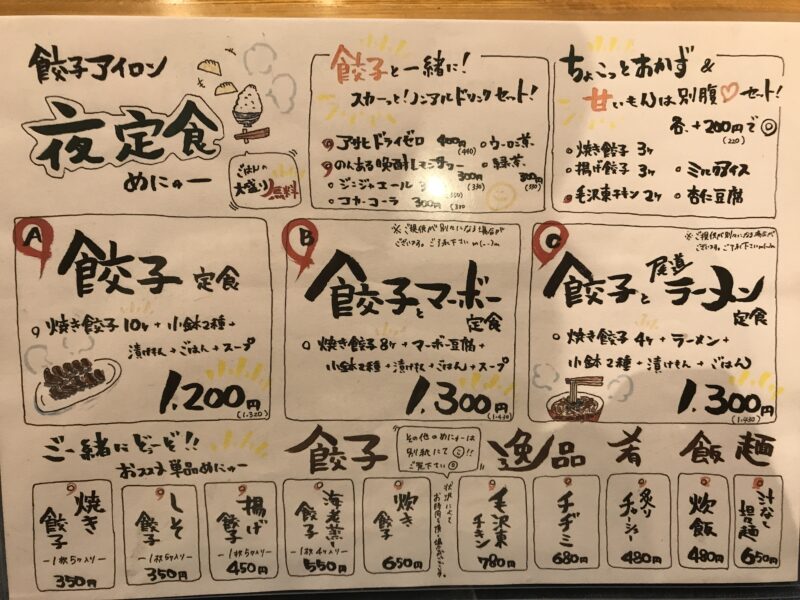 餃子アイロン
夜定食
めにゅー
ごはんの
大盛り無料
餃子と一緒に!
スカーっと!ノンアルドリンクセット!
アサヒドライゼロ 400円
(440)
のんある晩酌レモンサワー
300円
(330)
ジンジャエール
(330)
コカ・コーラ 300円
(330
ウーロン茶
緑茶
300円
(330)
ちょこっとおかず &
甘いもんは別腹♡セット!
各、+200円で
(220)
焼き餃子 3ケ
揚げ餃子 3ケ
毛沢東チキン 2ケ
ミルクアイス
杏仁豆腐
A
餃子定食
焼き餃子10ケ+小鉢2種+
漬けもん+ごはん+スープ
1.200円
(1.320)
B
※ご提供が別々になる場合が
ございます。ご了承下さいm(_ _)m
餃子とマーボー
定食
焼き餃子8ケ+マーボ豆腐+
小鉢2種+漬けもん+ごはん+スープ
1.300円
(1.430)
C
※ご提供が別々になる場合が
ございます。ご了承下さいm(_ _)m
餃子と尾道ラーメン
定食
焼き餃子4ケ+ラーメン+
小鉢2種+漬けもん+ごはん
1.300円
(1.430)
ご一緒にどーぞ!!
おススメ単品めにゅー
餃子
その他のめにゅーは
別紙にて
ご覧下さい
逸品
肴
飯
麺
焼き餃子
ー1枚5ケ入りー
350円
しそ餃子
ー1枚5ケ入りー
350円
揚げ餃子
ー1枚5ケ入りー
450円
海老蒸し餃子
ー1枚4ケ入りー
550円
炊き餃子
650円
状況によって
毛沢東チキン
780円
チヂミ
680円
炙りチャーシュー
480円
炊飯
480円
汁なし担々麺
650円